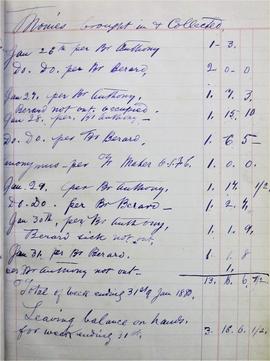 Monies brought in & Collected
Jan 26th per Br Anthony 1 - 3.
Do. Do. per Br Berard, 2 0 - 0
Jan 27. per Br Anthony, 1. 7. 3.
Berard not out. occupied.
Jan 28. per Br Anthony - 1. 15. 10
Do. Do. per Br Berard. 1. 6. 5 -
per 1. 0. 0.
Jan. 29. per Br Anthony. 1. 17. 1/2
Do. Do. per Br Berard 1. 2. 7
Jan 30th, per Br Anthony, 1. 1. 9.
Berard sick not out
Jan 31. per Br Berard. 1. 1. 8
Br Anthony not out - 1.
Total of week ending 31st of Jan 1880. 13. 6. 6. 1/2
Leaving balance on hands.
for week ending 31st. 3. 18. 6. 1/2.